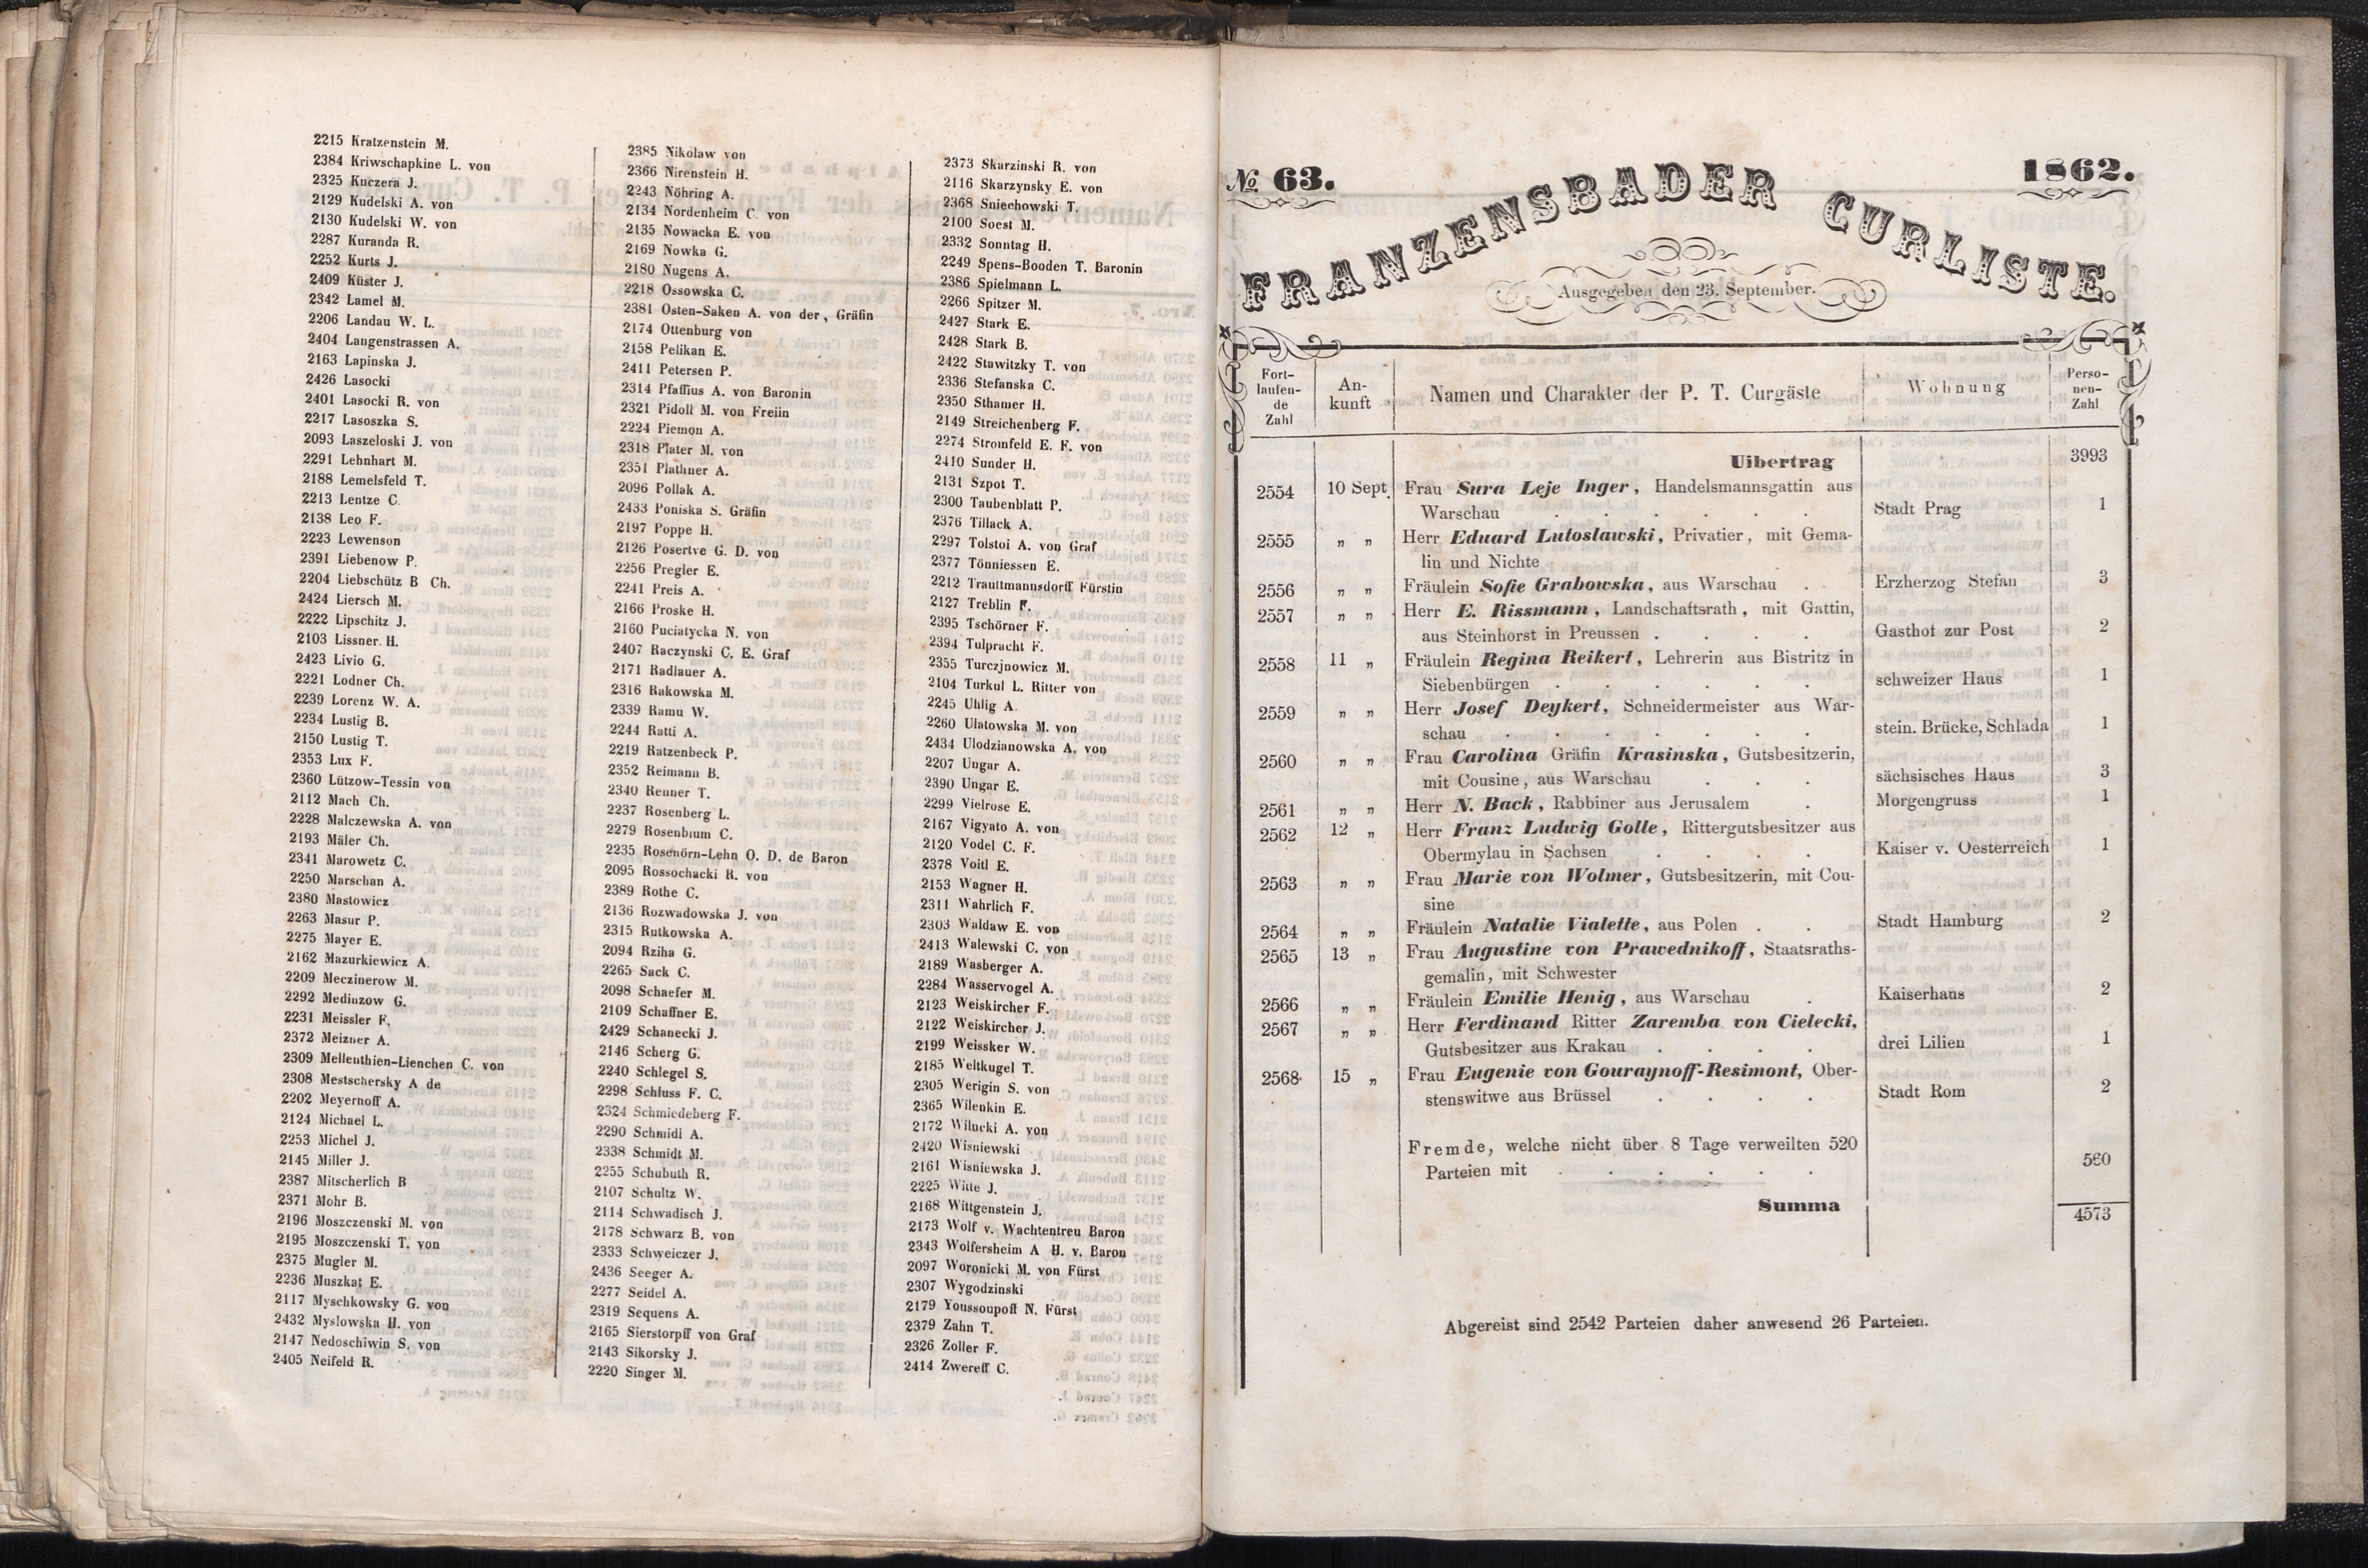 2215 Kratzenstein M.
2384 Kriwschapkine L. von
2325 Kuczera J.
2129 Kudelski A. von
2130 Kudelski W. von
2287 Kuranda R.
2252 Kurts J.
2409 Küster J.
2342 Lamel M.
2206 Landau W. L.
2404 Langenstrassen A.
2163 Lapinska J.
2426 Lasocki
2401 Lasocki R. von
2217 Lasoszka S.
2093 Laszeloski J. von
2291 Lehnhart M.
2188 Lemelsfeld T.
2213 Lentze C.
2138 Leo F.
2223 Lewenson
2391 Liebenow P.
2204 Liebschütz B Ch.
2424 Liersch M.
2222 Lipschitz J.
2103 Lissner H.
2423 Livio G.
2221 Lodner Ch.
2239 Lorenz W. A.
2234 Lustig B.
2150 Lustig T.
2353 Lux F.
2360 Lützow-Tessin von
2112 Mach Ch.
2228 Malczewska A. von
2193 Mäler Ch.
2341 Marowetz C.
2250 Marschan A.
2380 Mastowicz
2263 Masur P.
2275 Mayer E.
2162 Mazurkiewicz A.
2209 Meczinerow M.
2292 Medinzow G.
2231 Meissler F.
2372 Meizner A.
2309 Mellenthien-Lienchen C. von
2308 Mestschersky A de
2202 Meyernoff A.
2124 Michael L.
2253 Michel J.
2145 Miller J.
2387 Mitscherlich B
2371 Mohr B.
2196 Moszczenski M. von
2195 Moszczenski T. von
2375 Mugler M.
2236 Muszkat E.
2117 Myschkowsky G. von
2432 Myslowska H. von
2147 Nedoschiwin S. von
2405 Neifeld R.
2385 Nikolaw von
2366 Nirenstein H.
2243 Nöhring A.
2134 Nordenheim C. von
2135 Nowacka E. von
2169 Nowka G.
2180 Nugens A.
2218 Ossowska C.
2381 Osten-Saken A. von der, Gräfin
2174 Ottenburg von
2158 Pelikan E.
2411 Petersen P.
2314 Pfaffius A. von Baronin
2321 Pidoll M. von Freiin
2224 Piemon A.
2318 Plater M. von
2351 Plathner A.
2096 Pollak A.
2433 Poniska S. Gräfin
2197 Poppe H.
2126 Posertve G. D. von
2256 Pregler E.
2241 Preis A.
2166 Proske H.
2160 Puciatycka N. von
2407 Raczynski C. E. Graf
2171 Radlauer A.
2316 Rakowska M.
2339 Ramu W.
2244 Ratti A.
2219 Ratzenbeck P.
2352 Reimann B.
2340 Renner T.
2237 Rosenberg L.
2279 Rosenbium C.
2235 Rosenörn-Lehn O. D. de Baron
2095 Rossochacki R. von
2389 Rothe C.
2136 Rozwadowska J. von
2315 Rutkowska A.
2094 Rziha G.
2265 Sack C.
2098 Schaefer M.
2109 Schaffner E.
2429 Schanecki J.
2146 Scherg G.
2240 Schlegel S.
2298 Schluss F. C.
2324 Schmiedeberg F.
2290 Schmidl A.
2338 Schmidt M.
2255 Schubuth R.
2107 Schultz W.
2114 Schwadisch J.
2178 Schwarz B. von
2333 Schweiczer J.
2436 Seeger A.
2277 Seidel A.
2319 Sequens A.
2165 Sierstorpff von Graf
2143 Sikorsky J.
2220 Singer M.
2373 Skarzinski R. von
2116 Skarzynsky E. von
2368 Sniechowski T.
2100 Soest M.
2332 Sonntag H.
2249 Spens-Booden T. Baronin
2386 Spielmann L.
2266 Spitzer M.
2427 Stark E.
2428 Stark B.
2422 Stawitzky T. von
2336 Stefanska C.
2350 Sthamer H.
2149 Streichenberg F.
2274 Stromfeld E. F. von
2410 Sunder H.
2131 Szpot T.
2300 Taubenblatt P.
2376 Tillack A.
2297 Tolstoi A. von Graf
2377 Tönniessen E.
2212 Trauttmannsdorff Fürstin
2127 Treblin F.
2395 Tschörner F.
2394 Tulpracht F.
2355 Turczjnowicz M.
2104 Turkul L. Ritter von
2245 Uhlig A.
2260 Ulatowska M. von
2434 Ulodzianowska A. von
2207 Ungar A.
2390 Ungar E.
2299 Vielrose E.
2167 Vigyato A. von
2120 Vodel C. F.
2378 Voitl E.
2153 Wagner H.
2311 Wahrlich F.
2303 Waldaw E. von
2413 Walewski C. von
2189 Wasberger A.
2284 Wasservogel A.
2123 Weiskircher F.
2122 Weiskircher J.
2199 Weissker W.
2185 Weltkugel T.
2305 Werigin S. von
2365 Wilenkin E.
2172 Wilucki A. von
2420 Wisniewski
2161 Wisniewska J.
2225 Witte J.
2168 Wittgenstein J.
2173 Wolf v. Wachtentreu Baron
2343 Wolfersheim A H. v. Baron
2097 Woronicki M. von Fürst
2307 Wygodzinski
2179 Youssoupoff N. Fürst
2379 Zahn T.
2326 Zoller F.
2414 Zwereff C.
№ 63.
1862.
FRANZENSBADER CURLISTE.
Ausgegeben den 23. September.
Fort-laufen-de Zahl An-kunft Namen und Charakter der P. T. Curgäste Wohnung Perso-nen-Zahl
Uibertrag 3993
2554 10 Sept. Frau Sura Leje Inger, Handelsmannsgattin aus
Warschau . . . . . . Stadt Prag 1
2555 „ „ Herr Eduard Lutoslawski, Privatier, mit Gema-
lin und Nichte
2556 „ „ Fräulein Sofie Grabowska, aus Warschau . Erzherzog Stefan 3
2557 „ „ Herr E. Rissmann, Landschaftsrath, mit Gattin,
aus Steinhorst in Preussen . . . . Gasthof zur Post 2
2558 11 „ Fräulein Regina Reikert, Lehrerin aus Bistritz in
Siebenbürgen . . . . . . schweizer Haus 1
2559 „ „ Herr Josef Deykert, Schneidermeister aus War-
schau . . . . . . . stein. Brücke, Schlada 1
2560 „ „ Frau Carolina Gräfin Krasinska, Gutsbesitzerin,
mit Cousine, aus Warschau . . . sächsisches Haus 3
2561 „ „ Herr N. Back, Rabbiner aus Jerusalem . Morgengruss 1
2562 12 „ Herr Franz Ludwig Golle, Rittergutsbesitzer aus
Obermylau in Sachsen . . . . Kaiser v. Oesterreich 1
2563 „ „ Frau Marie von Wolmer, Gutsbesitzerin, mit Cou-
sine
2564 „ „ Fräulein Natalie Vialette, aus Polen . . Stadt Hamburg 2
2565 13 „ Frau Augustine von Prawednikoff, Staatsraths-
gemalin, mit Schwester
2566 „ „ Fräulein Emilie Henig, aus Warschau . Kaiserhaus 2
2567 „ „ Herr Ferdinand Ritter Zaremba von Cielecki,
Gutsbesitzer aus Krakau . . . . drei Lilien 1
2568 15 „ Frau Eugenie von Gouraynoff-Resimont, Ober-
stenswitwe aus Brüssel . . . . Stadt Rom 2
Fremde, welche nicht über 8 Tage verweilten 520
Parteien mit . . . . . . 560
Summa 4573
Abgereist sind 2542 Parteien daher anwesend 26 Parteien.